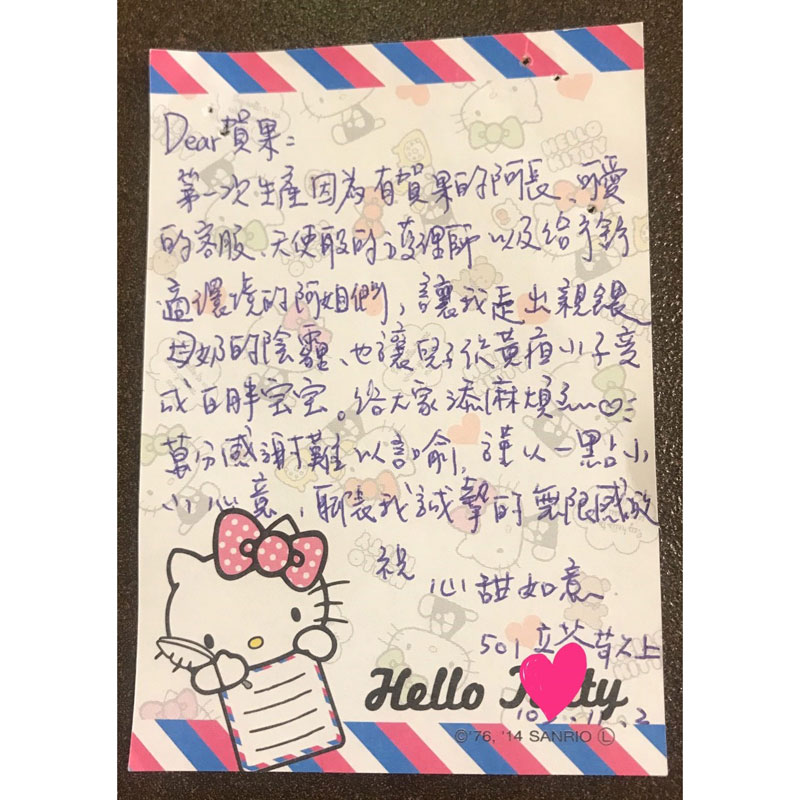 Dear 蘋果:
第一次生產因為有蘋果的阿長、可愛
的客服、天使般的護理師以及給予舒
適環境的阿姐們,讓我走出親餵
母奶的陰霾、也讓兒子從黃疸小子變
成白胖宝宝。給大家添麻煩了~♡
萬分感謝難以言喻,謹以一點小
小心意,聊表我誠摯的無限感激
祝
心甜如意
501
上
Hello Kitty
10 .11.2
©'76, '14 SANRIO Ⓛ
HELLO KITTY